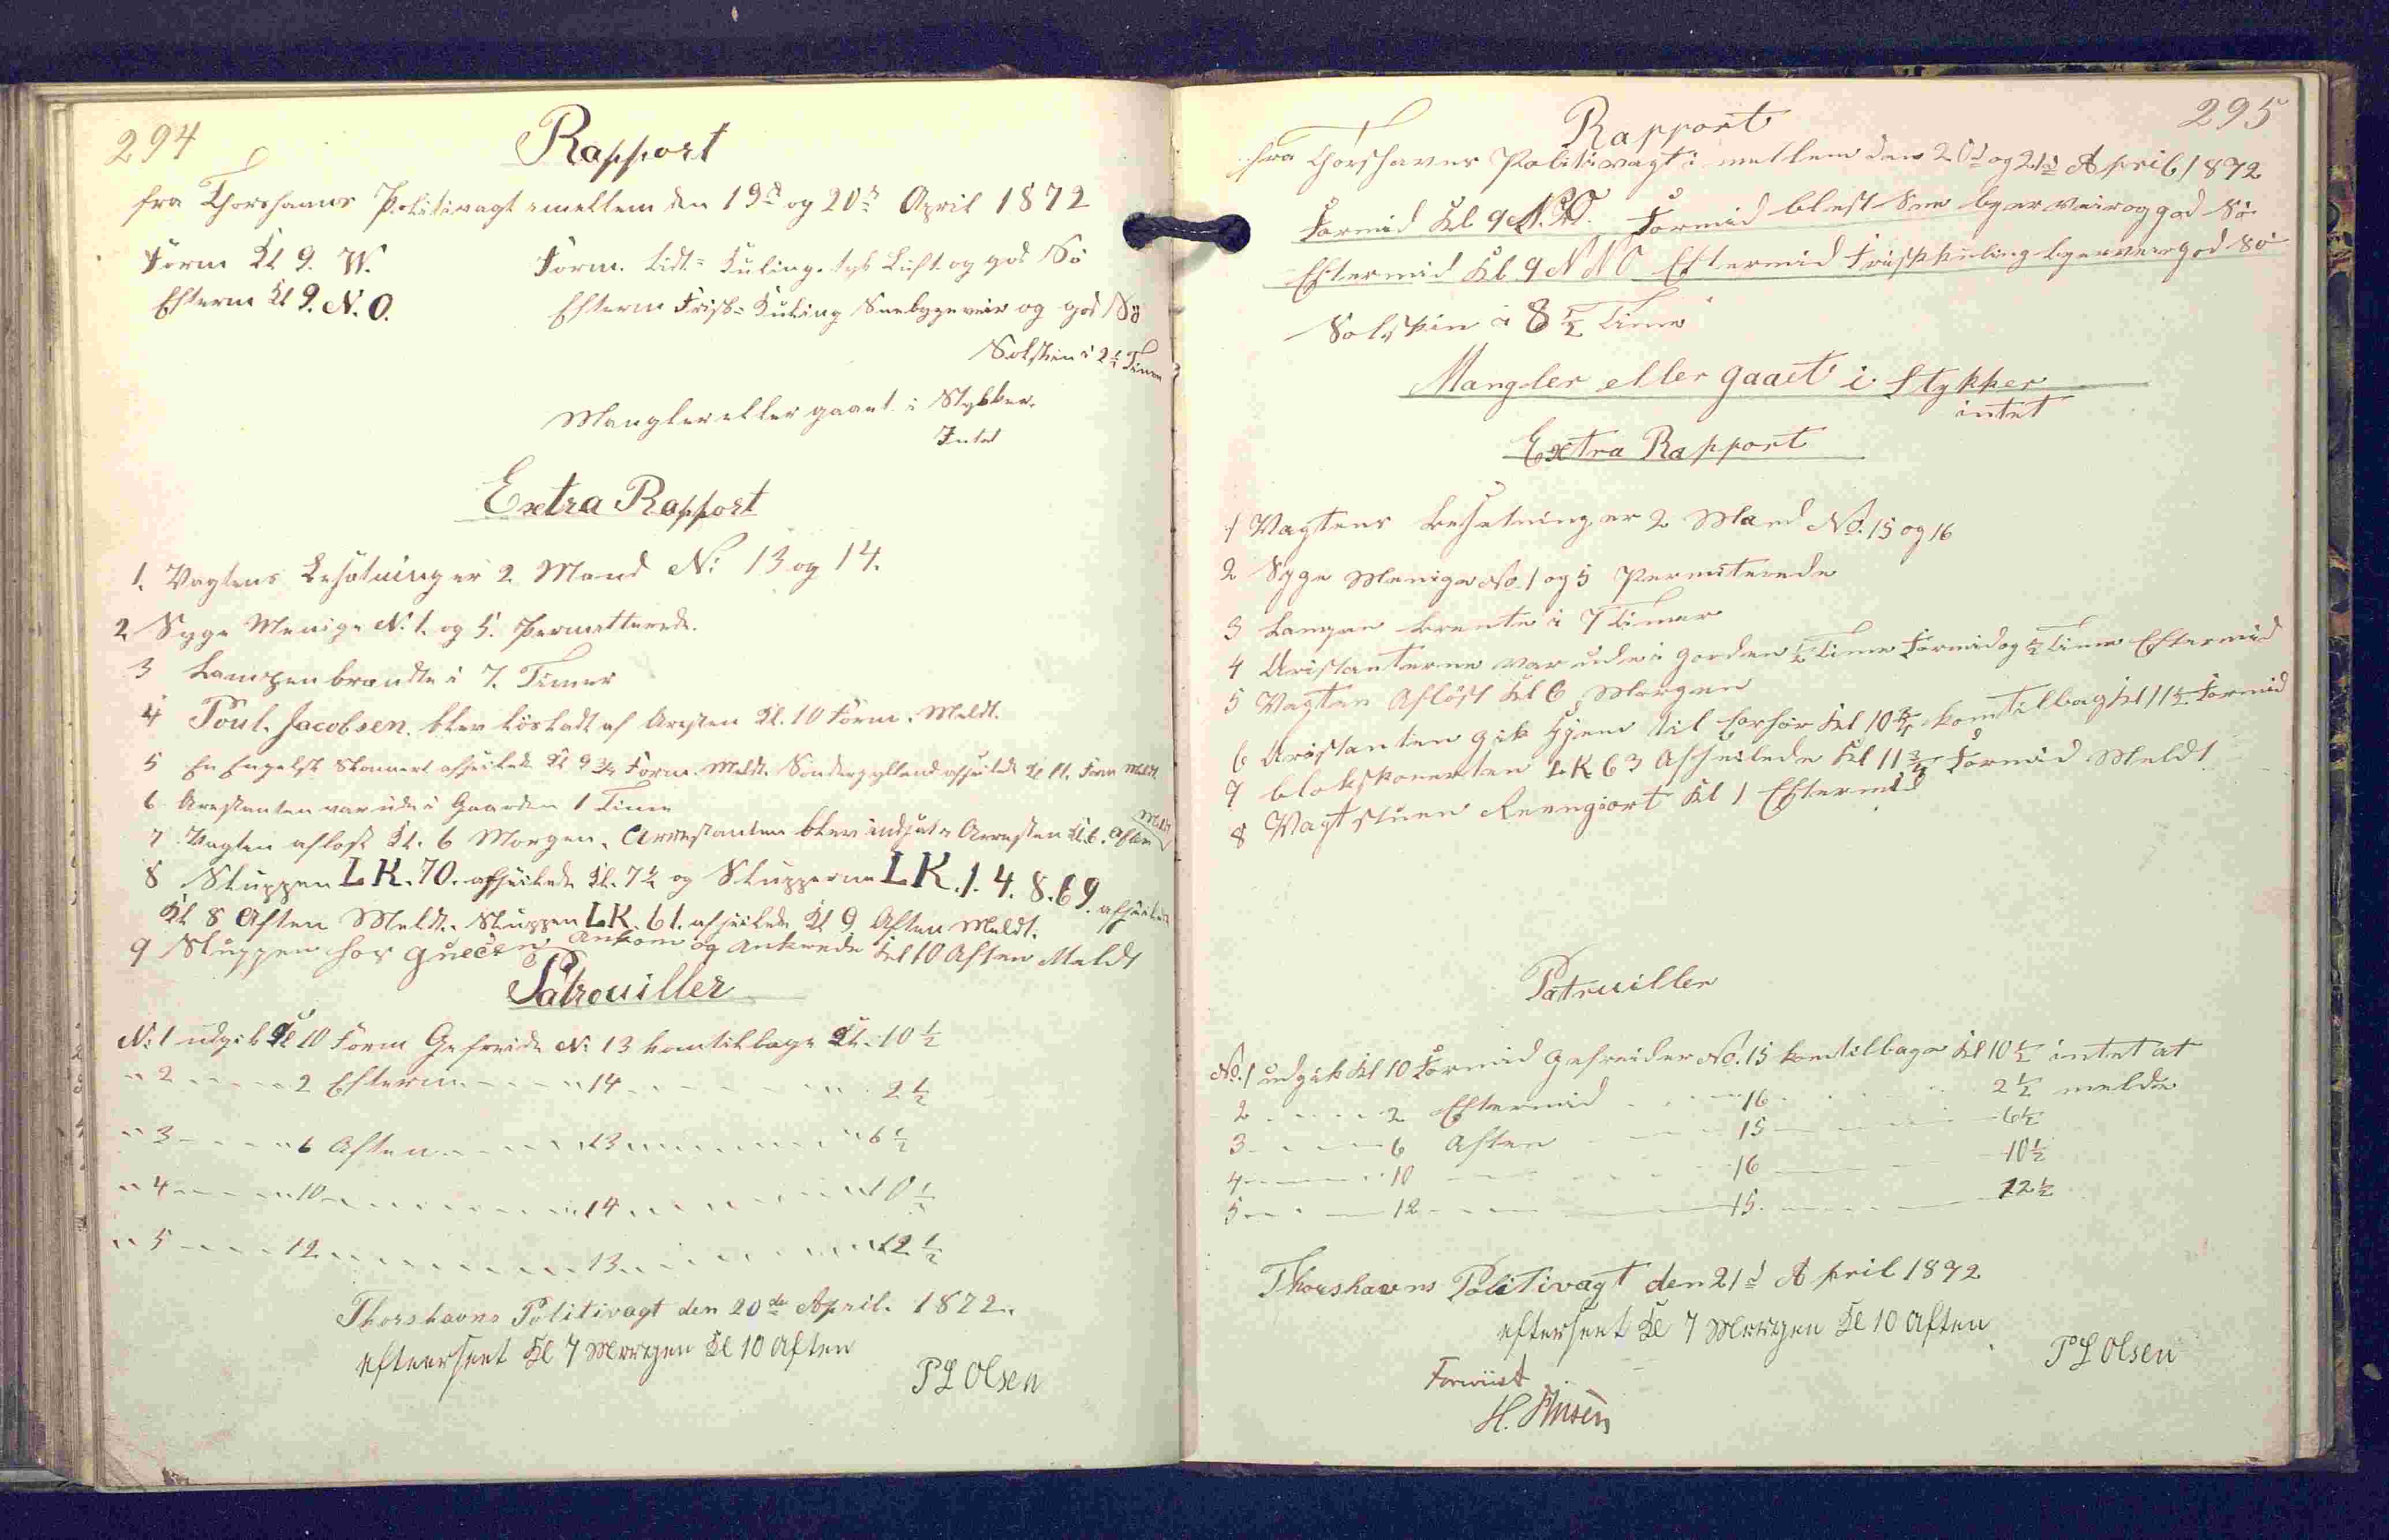 294
Rapport
fra Thorshavns Politivagt imellem den 19de og 20de April 1872
Form Kl 9. W. Form. lidt= Kuling. tyk Luft og god Sö
Efterm Kl 9. N. O. Efterm Frisk= Kuling Sneebygeveir og god Sö
Solskin i 2½ Time
Mangler eller gaaet i Stykker.
Intet
Extra Rapport
1. Vagtens Besætning er 2 Mand No. 13 og 14.
2 Syge Menige No. 1. og 5. Permitterede.
3 Lampen brændte i 7. Timer
4 Poul. Jacobsen. blev lösladt af Aresten Kl. 10 Form. Meldt.
5 En Engelsk Skonnert afseilede Kl 9¾ Form. Meldt. afseilede Kl 11. Form Meldt.
6 Arestanten var ude i Gaarden 1 Time
7 Vagten aflöst Kl. 6 Morgen. Arrestanten blev indsat i Arresten Kl. 6. Aften Meldt
8 Sluppen LK. 70. afseilede Kl. 7½ og Slupperne LK. 1. 4. 8. 69. afseilede
Kl 8 Aften Meldt. Sluppen LK. 61. afseilede Kl 9 Aften Meldt.
9 Sluppen ankom og ankrede Kl 10 Aften Meldt
Patrouiller
No. 1 udgik Kl 10 Form Gefreide No 13 kom tilbage Kl. 10½
" 2 - - - - 2 Efterm - - - " 14 - - - - 2½
" 3 - - - - 6 Aften - - - - 13 - - - - 6½
" 4 - - - - 10 - - - - 14 - - - - 10½
" 5 - - - - 12 - - - - 13 - - - - 12½
Thorshavns Politivagt den 20de April. 1872.
efterseet Kl 7 Morgen Kl 10 Aften
P L Olsen
295
Rapport
fra Thorshavns Politivagt i mellem den 20d og 21d April 1872
Formid Kl 9 N.O. Formid blest Sne byer veir og god Sö
Eftermid Kl. 9 N N O Eftermid Frisk kuling byer veir god Sö
Solskin i 8½ Time
Mangler eller gaaet i Stykker
intet
Extra Rapport
1 Vagtens Besetning er 2 Mand No. 15 og 16
2 Syge Menige No. 1 og 5 Permiterede
3 Lampen brente i 7 Timer
4 Aristanterne var ude i Gorden ½ Time Formid og ½ Time Eftermid
5 Vagten Aflöst Kl 6 Morgen
6 Aristanten gik Hjem til Forhör Kl 10¾ kom tilbag Kl 11½ Formid
7 blokskonerten LK 63 Afseilede Kl 11¾ Formid Meldt
8 Vagtstuen Reengiort Kl 1 Eftermid
Patruiller
No. 1 udgik Kl 10 Formid Gefreider No. 15 kom tilbage Kl 10½ intet at
2 - - - - 2 Eftermid - - - 16 - - - - 2½ melde
3 - - - - 6 Aften - - - 15 - - - - 6½
4 - - - - 10 - - - - 16 - - - - 10½
5 - - - - 12 - - - - 15 - - - - 12½
Thorshavns Politivagt den 21d April 1872
efterseet Kl 7 Morgen Kl 10 Aften
P L Olsen
Foreviist